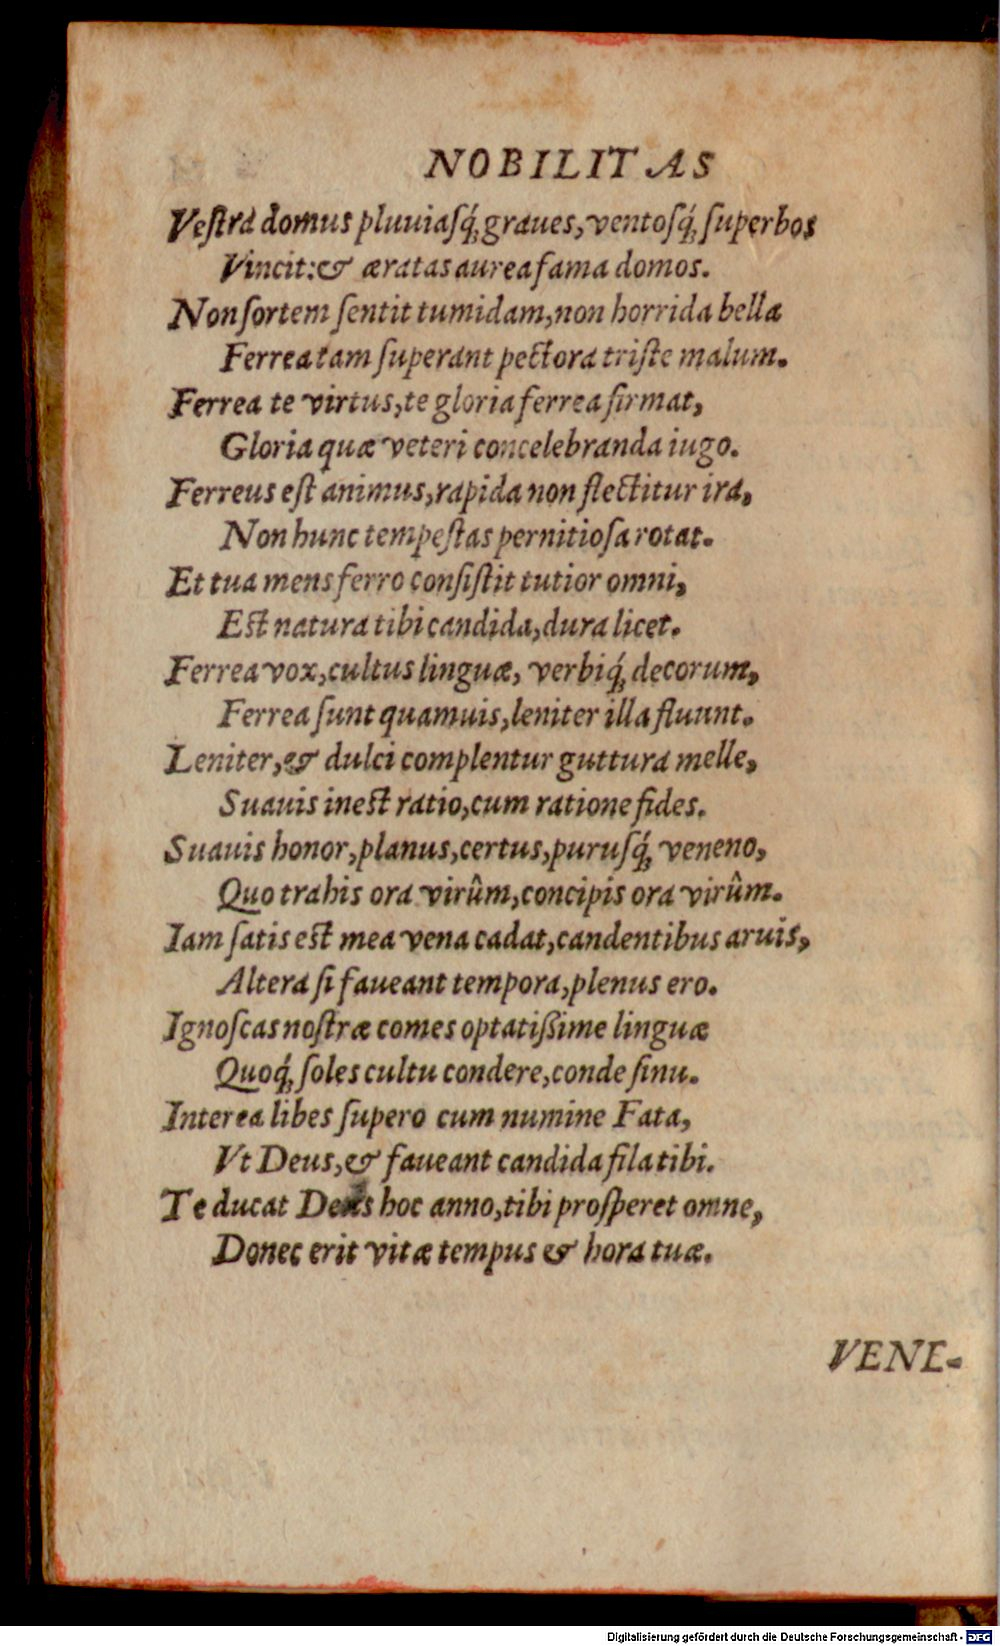 NOBILITAS
Veſtra domus pluuiaſq́; graues, ventoſq́; ſuperbos
Vincit: & æratas aurea fama domos.
Non ſortem ſentit tumidam, non horrida bella
Ferrea tam ſuperant pectora triſte malum.
Ferrea te virtus, te gloria ferrea firmat,
Gloria quæ veteri concelebranda iugo.
Ferreus eſt animus, rapida non flectitur ira,
Non hunc tempeſtas pernitioſa rotat.
Et tua mens ferro conſiſtit tutior omni,
Eſt natura tibi candida, dura licet.
Ferrea vox, cultus linguæ, verbiq́; decorum,
Ferrea ſunt quamuis, leniter illa fluunt.
Leniter, & dulci complentur guttura melle,
Suauis ineſt ratio, cum ratione fides.
Suauis honor, planus, certus, puruſq́; veneno,
Quo trahis ora virûm, concipis ora virûm.
Iam ſatis eſt mea vena cadat, candentibus aruis,
Altera ſi faueant tempora, plenus ero.
Ignoſcas noſtræ comes optatiſſime linguæ
Quoq́; ſoles cultu condere, conde ſinu.
Interea libes ſupero cum numine Fata,
Vt Deus, & faueant candida fila tibi.
Te ducat Deus hoc anno, tibi proſperet omne,
Donec erit vitæ tempus & hora tuæ.
VENE-
Digitalisierung gefördert durch die Deutsche Forschungsgemeinschaft - DFG